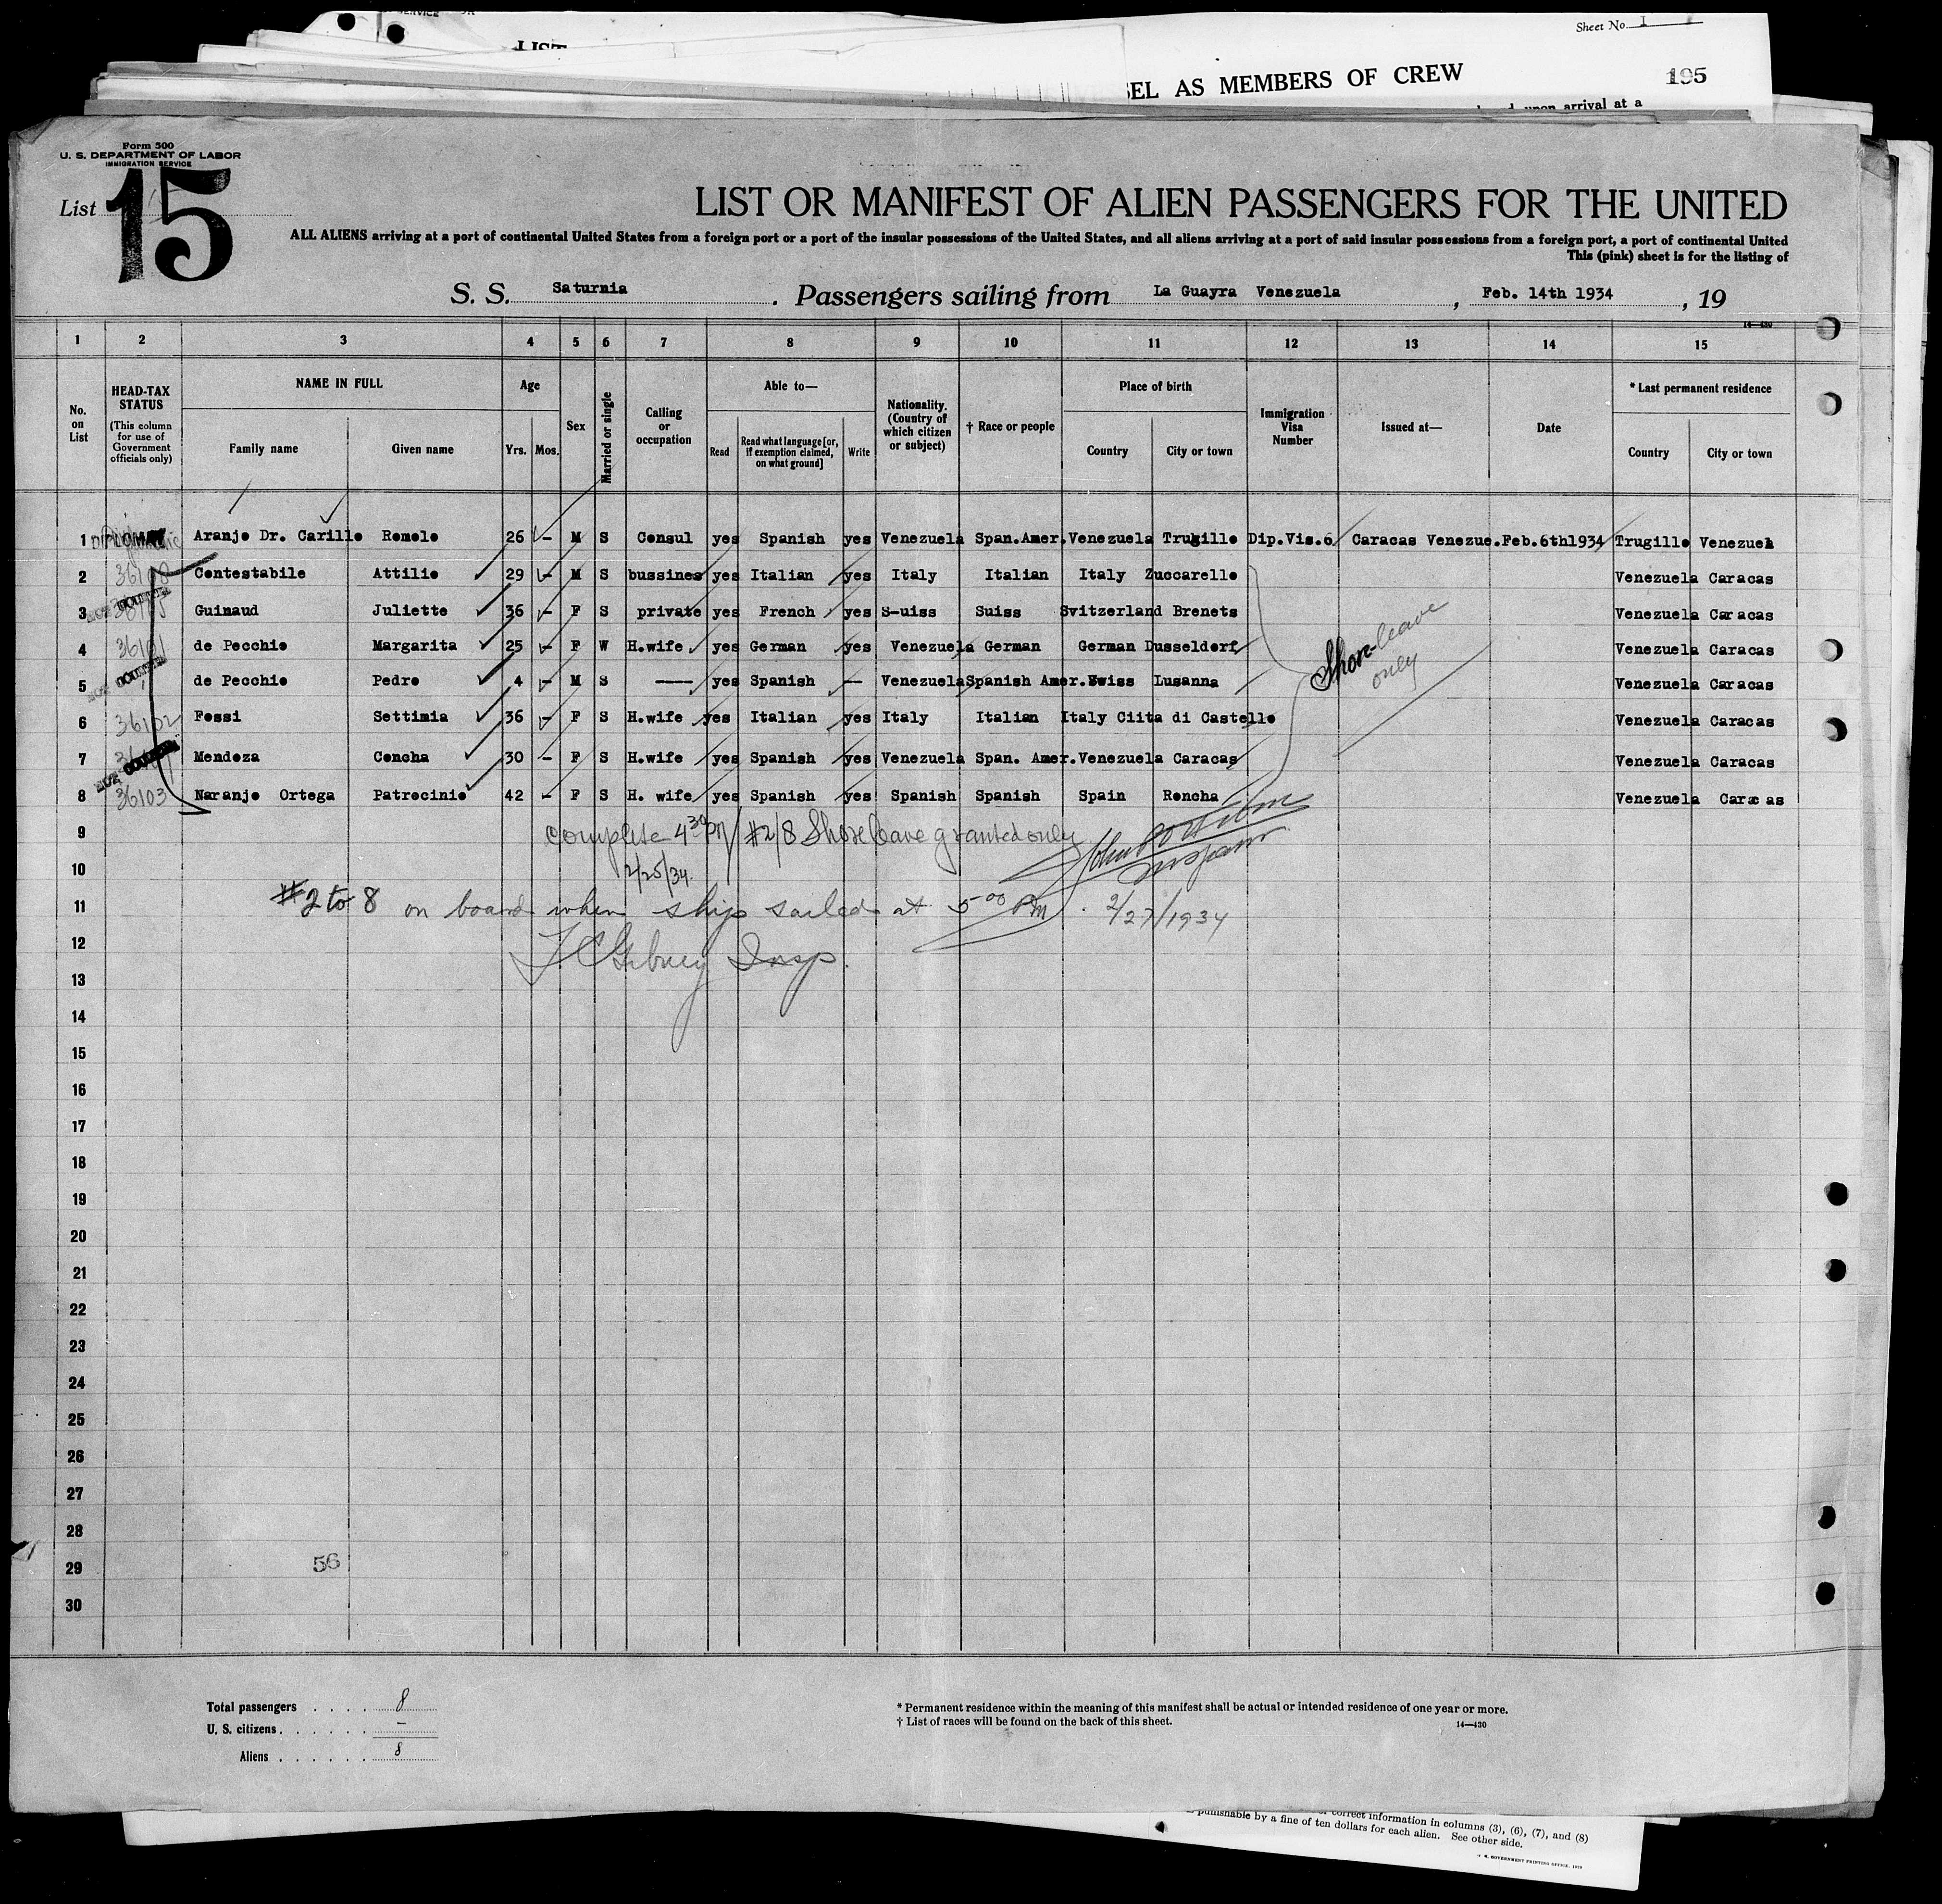 Sheet No. I
LIST
SEL AS MEMBERS OF CREW
195
upon arrival at a
Form 500
U. S. DEPARTMENT OF LABOR
IMMIGRATION SERVICE
List 15
LIST OR MANIFEST OF ALIEN PASSENGERS FOR THE UNITED
ALL ALIENS arriving at a port of continental United States from a foreign port or a port of the insular possessions of the United States, and all aliens arriving at a port of said insular possessions from a foreign port, a port of continental United
This (pink) sheet is for the listing of
S. S. Saturnia . Passengers sailing from La Guayra Venezuela , Feb. 14th 1934 , 19
14—430
1 2 3 4 5 6 7 8 9 10 11 12 13 14 15
No. on List
HEAD-TAX STATUS (This column for use of Government officials only)
NAME IN FULL Family name Given name
Age Yrs. Mos.
Sex
Married or single
Calling or occupation
Able to— Read Read what language [or, if exemption claimed, on what ground] Write
Nationality. (Country of which citizen or subject)
† Race or people
Place of birth Country City or town
Immigration Visa Number
Issued at—
Date
* Last permanent residence Country City or town
1 Aranjo Dr. Carillo Romolo 26 - M S Consul yes Spanish yes Venezuela Span.Amer. Venezuela Trugillo Dip.Vis.6 Caracas Venezue. Feb.6th1934 Trugillo Venezuel
2 Contestabile Attilio 29 - M S bussines yes Italian yes Italy Italian Italy Zuccarello Venezuela Caracas
3 Guinaud Juliette 36 - F S private yes French yes S-uiss Suiss Svitzerland Brenets Venezuela Caracas
4 36101 de Pecchio Margarita 25 - F W H.wife yes German yes Venezuela German German Dusseldorf Venezuela Caracas
5 de Pecchio Pedro 4 - M S —— yes Spanish — Venezuela Spanish Amer. Swiss Lusanna Venezuela Caracas
6 36102 Fossi Settimia 36 - F S H.wife yes Italian yes Italy Italian Italy Ciita di Castello Venezuela Caracas
7 Mendoza Concha 30 - F S H.wife yes Spanish yes Venezuela Span. Amer. Venezuela Caracas Venezuela Caracas
8 36103 Naranjo Ortega Patrocinio 42 - F S H. wife yes Spanish yes Spanish Spanish Spain Roncha Venezuela Caracas
Shore leave
only
9 Complete 4 30 PM #2/8 Shore leave granted only
10 2/25/34.
11 #2 to 8 on board when ship sailed at 5 00 PM. 2/27/1934
12 Insp.
13
14
15
16
17
18
19
20
21
22
23
24
25
26
27
28
29 56
30
Total passengers . . . . 8
U. S. citizens . . . . . . —
Aliens . . . . . . 8
* Permanent residence within the meaning of this manifest shall be actual or intended residence of one year or more.
† List of races will be found on the back of this sheet.
14—430
correct information in columns (3), (6), (7), and (8)
punishable by a fine of ten dollars for each alien. See other side.
GOVERNMENT PRINTING OFFICE